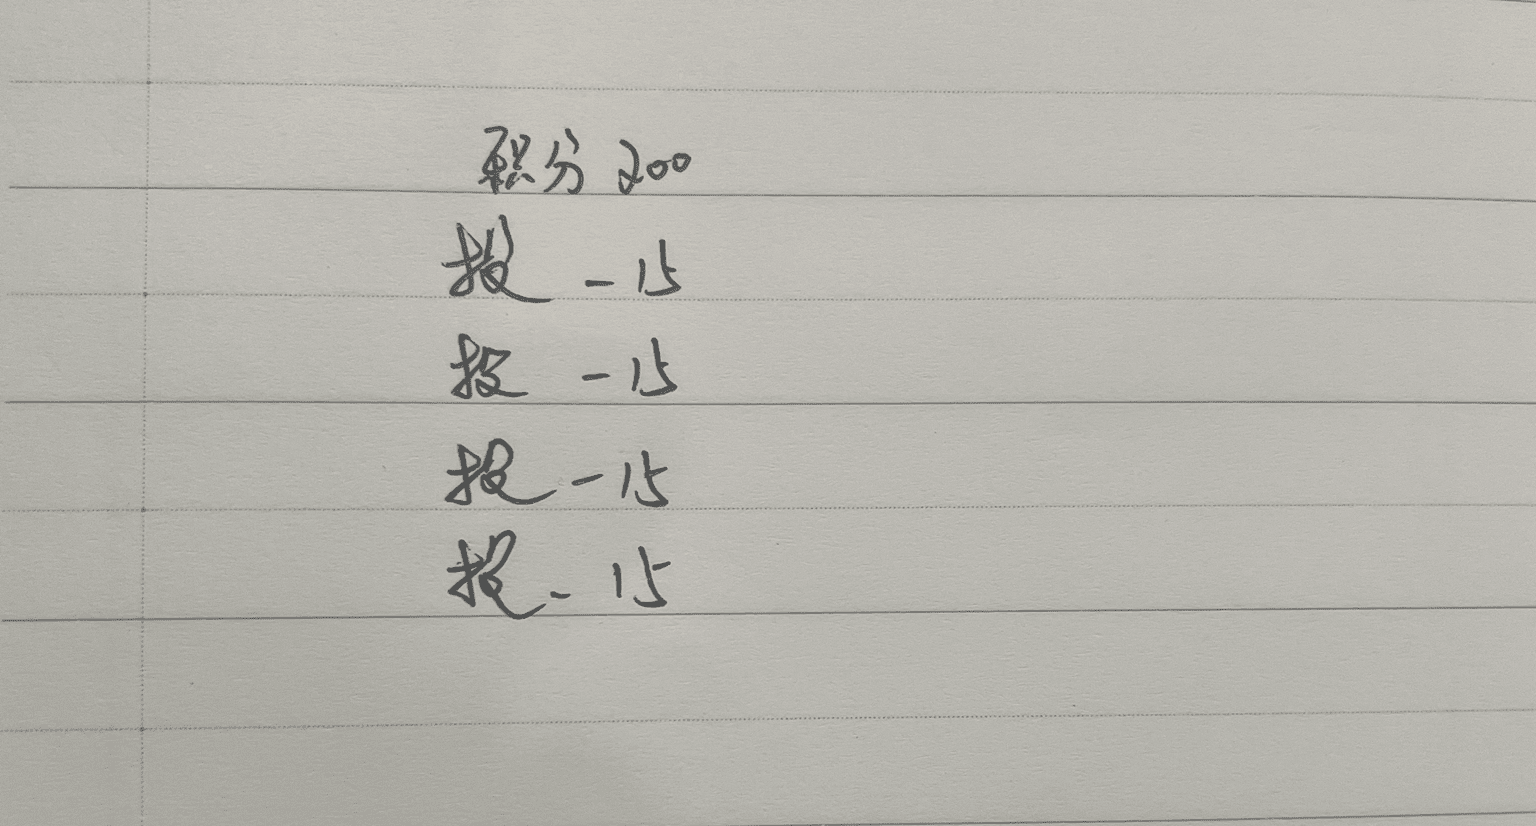 积分 200
投 - 15
投 - 15
投 - 15
投 - 15